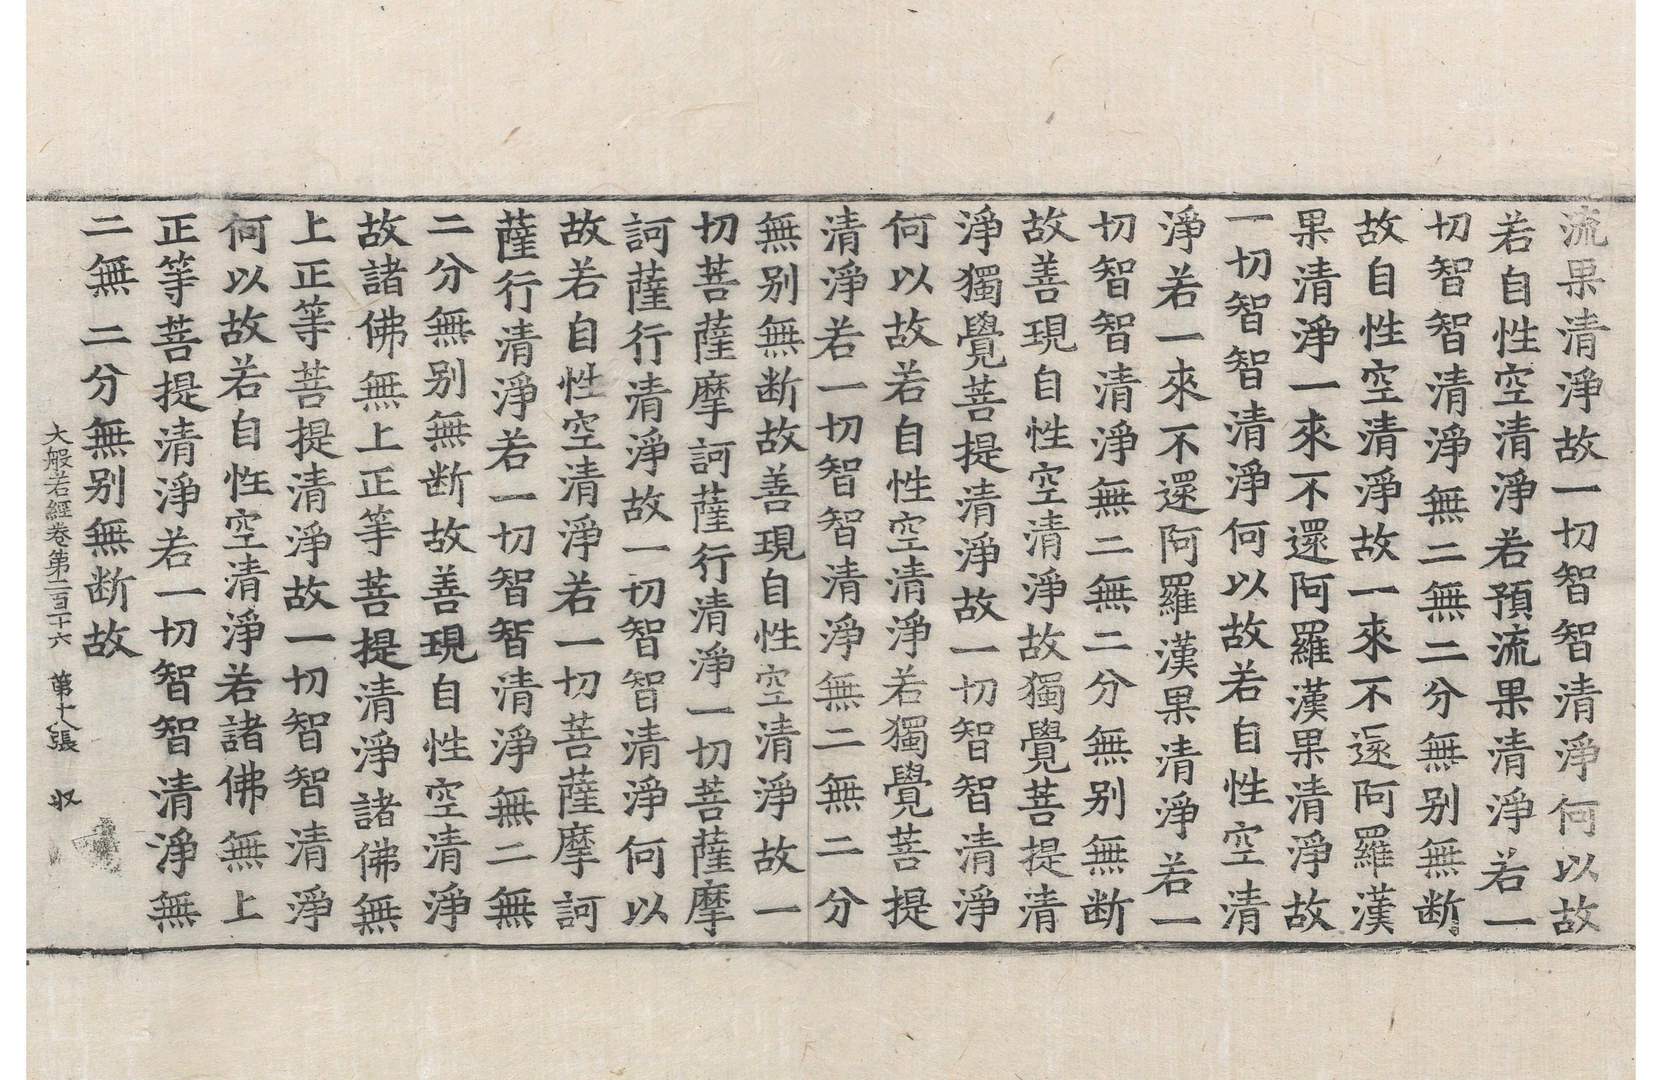 流果清淨故一切智智清淨何以故
若自性空清淨若預流果清淨若一
切智智清淨無二無二分無别無断
故自性空清淨故一來不還阿羅漢
果清淨一來不還阿羅漢果清淨故
一切智智清淨何以故若自性空清
淨若一來不還阿羅漢果清淨若一
切智智清淨無二無二分無别無断
故善現自性空清淨故獨覺菩提清
淨獨覺菩提清淨故一切智智清淨
何以故若自性空清淨若獨覺菩提
清淨若一切智智清淨無二無二分
無别無断故善現自性空清淨故一
切菩薩摩訶薩行清淨一切菩薩摩
訶薩行清淨故一切智智清淨何以
故若自性空清淨若一切菩薩摩訶
薩行清淨若一切智智清淨無二無
二分無别無断故善現自性空清淨
故諸佛無上正等菩提清淨諸佛無
上正等菩提清淨故一切智智清淨
何以故若自性空清淨若諸佛無上
正等菩提清淨若一切智智清淨無
二無二分無别無断故
大般若經卷第二百一十六 第十八張 収